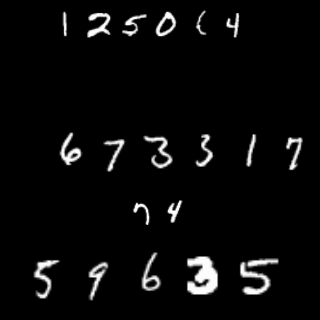 1250(4
673317
74
59635